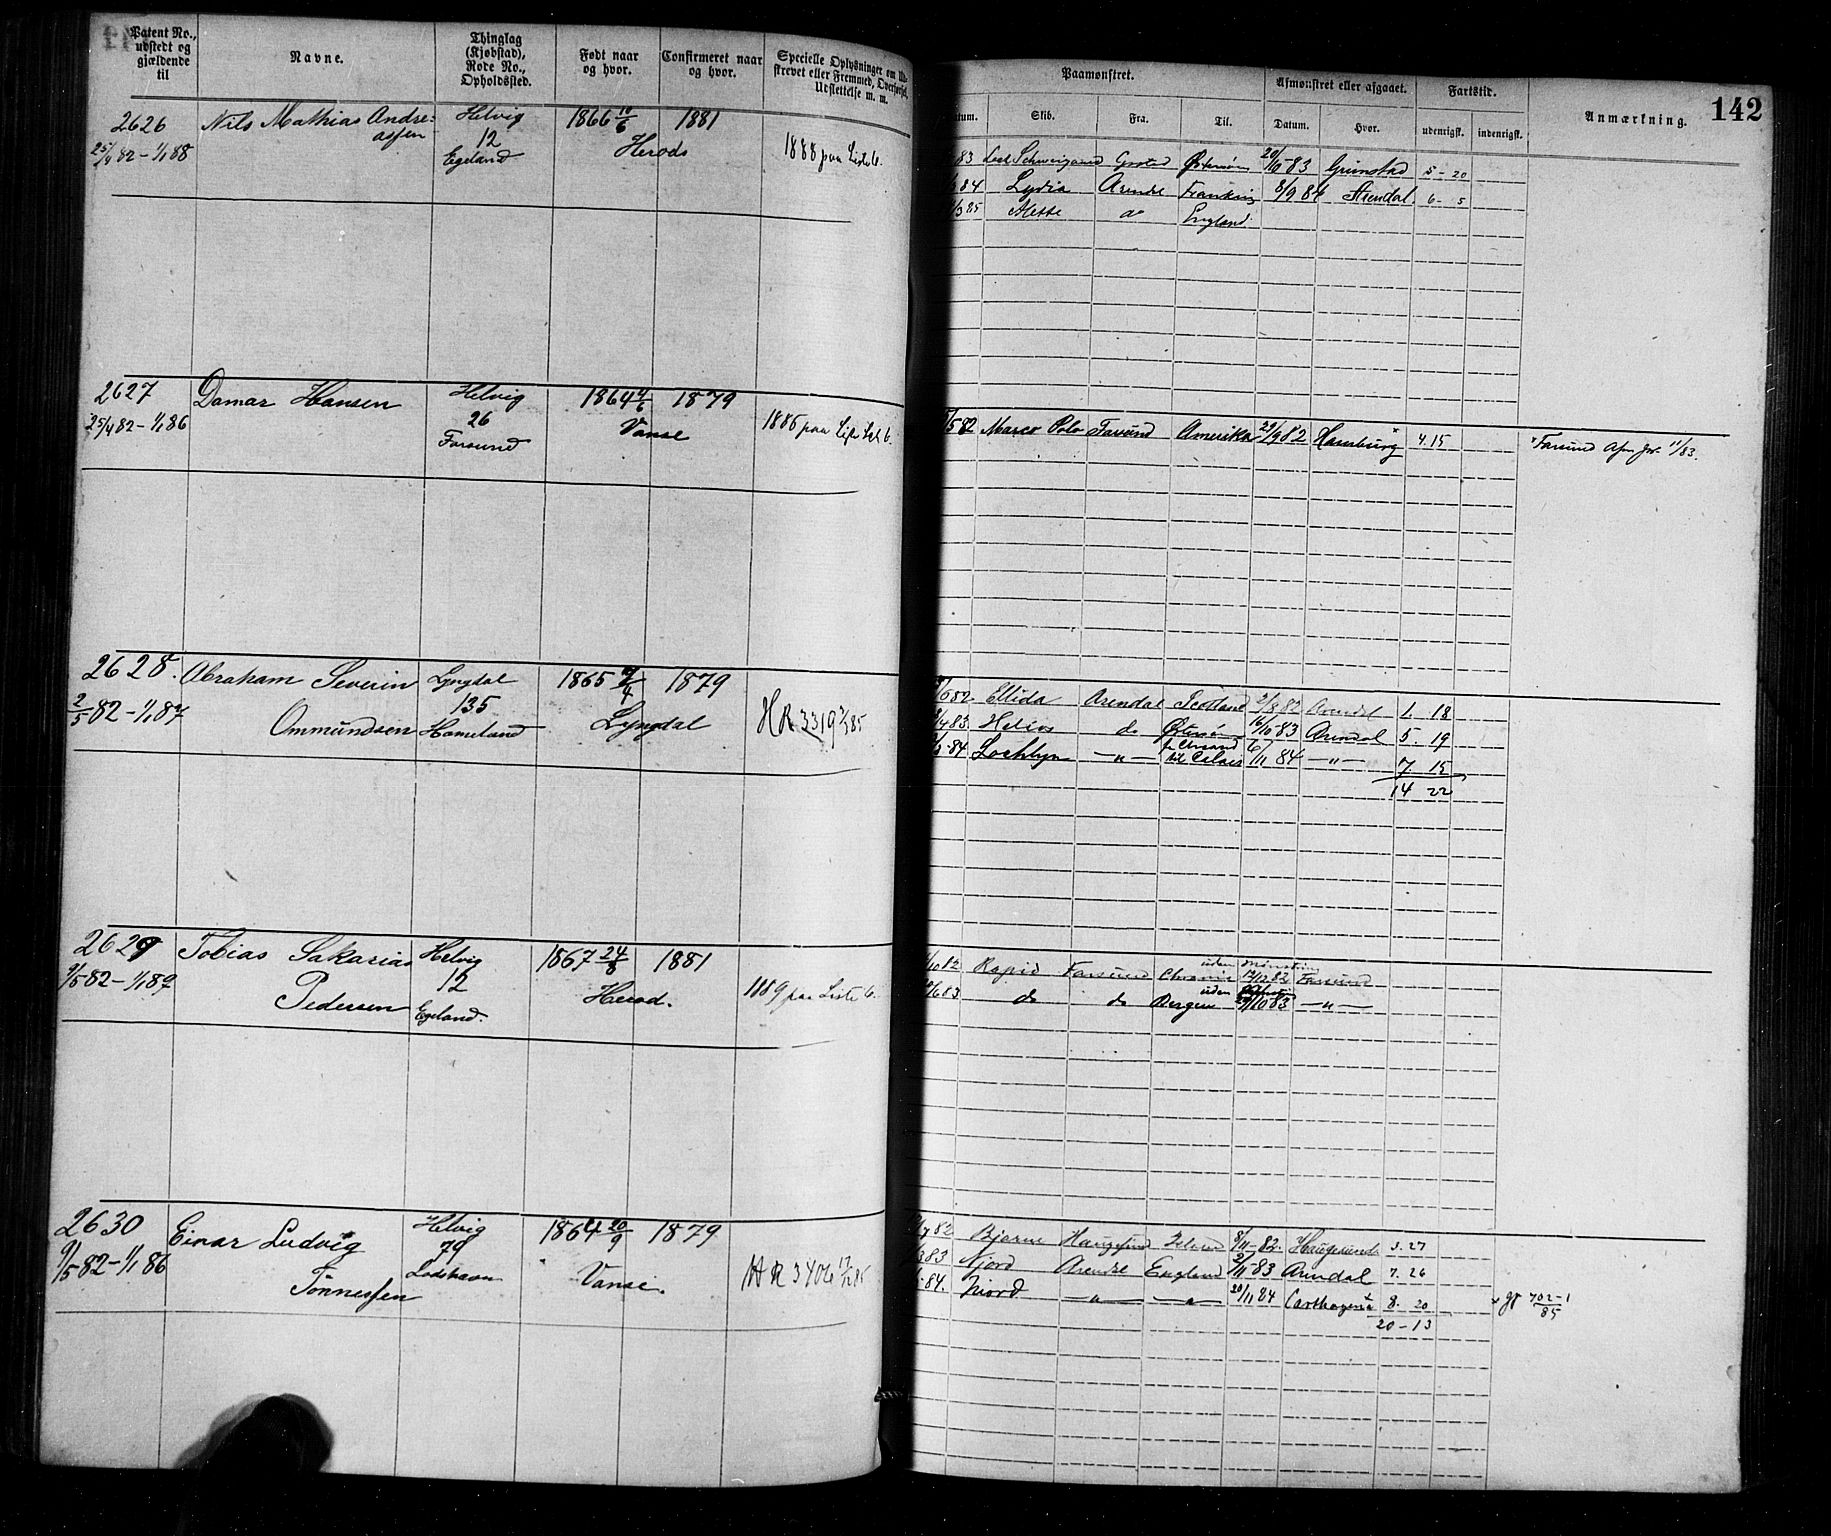 Patent No.,
udstedt og
gjældende
til
Navne.
Thinglag
(Kjøbstad),
Rode No.,
Opholdssted.
Født naar
og hvor.
Confirmeret naar
og hvor.
Specielle Oplysninger om Ud-
skrevet eller Fremmed, Overførsel,
Udslettelse m. m.
Paamønstret.
Afmønstret eller afgaaet.
Fartstid.
Anmærkning.
142
Skib.
Fra.
Til.
Datum.
Hvor.
udenrigsk.
indenrigsk.
2626 Nils Mathias Andre-
assen
25/4 82 - 1/1 88
Helvig
12
Egeland
1866 10/6 1881
Herods
1888 paa Liste 6.
83 Schweigaard Østersøen 20/10 83 Grimstad 5 - 20
84 Lydia Arendl 8/9 84 Arendal 6 - 5
/3 85 do England
2627 Damar Hansen
25/4 82 - 1/1 86
Helvig
26
Farsund
1864 4/6 1879
Vanse
1886 paa
/5 82 Marco Polo Farsund Amerika 29/9 82 Hamburg 4.15
Farsund 11/83.
2628. Abraham Severin
2/5 82 - 1/1 87 Ommundsen
Lyngdal
135
Hameland
1865 1879
Lyngdal
HR 3319 85
/6 82. Ellida Arendal Scotland 2/8 82 Arendl 1. 18
/4 83. Helios do Østersøen 16/10-83 Arendal 5. 19
84 - " - til 6/11 84 - " - 7. 15
14 22
2629 Tobias Sakarias
9/5 82 - 1/1 89 Pedersen
Helvig
12
Egeland.
1867 24/8 1881
Herod.
1889 paa Liste 6.
uden
/10 82 Rapid Farsund 82 Farsund
uden
/6 83 do do Bergen 10 83 - " -
2630 Einar Ludvig
9/5 82 - 1/1 86 Tønnessen
Helvig
79
Lodshavn
1864 20/9 1879
Vanse.
HR 3406 85
82 Bjarne Haugesund 8/11 - 82. Haugesund 3. 27
/3 83 Njord Arendl England 2/11 - 83 Arendal 7. 26
84. Njord - " - - " - 20/11 84 Carthagena 8. 20
20 - 13
702-1
85